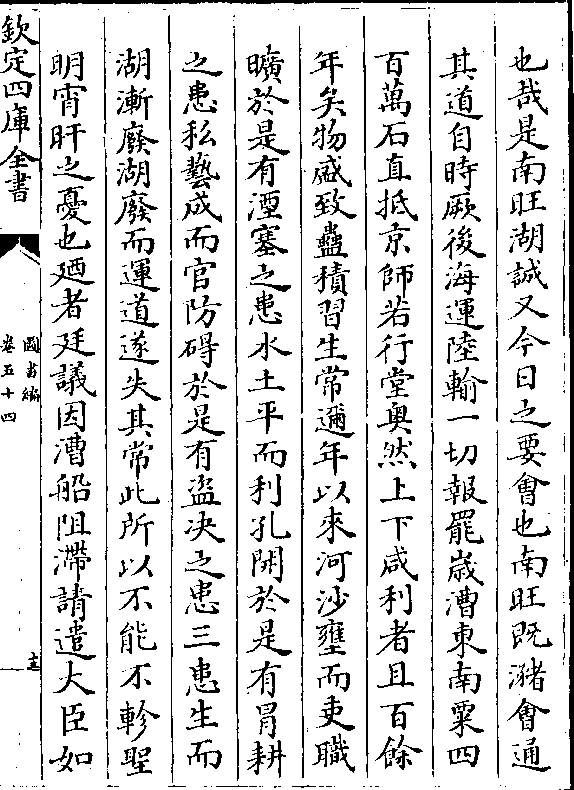 也哉是南旺湖誠又今日之要會也南旺既瀦會通
其道自時厥後海運陸輸一切報罷歲漕東南粟四
百萬石直抵京師若行堂奥然上下咸利者且百餘
年矣物盛致蠱積習生常邇年以來河沙壅而吏職
曠於是有湮塞之患水土平而利孔開於是有冒耕
之患私藝成而官防碍於是有盗决之患三患生而
湖漸廢湖廢而運道遂失其常此所以不能不軫聖
明宵旰之憂也廼者廷議因漕船阻滯請遣大臣如
欽定四庫全書
圖書編
卷五十四